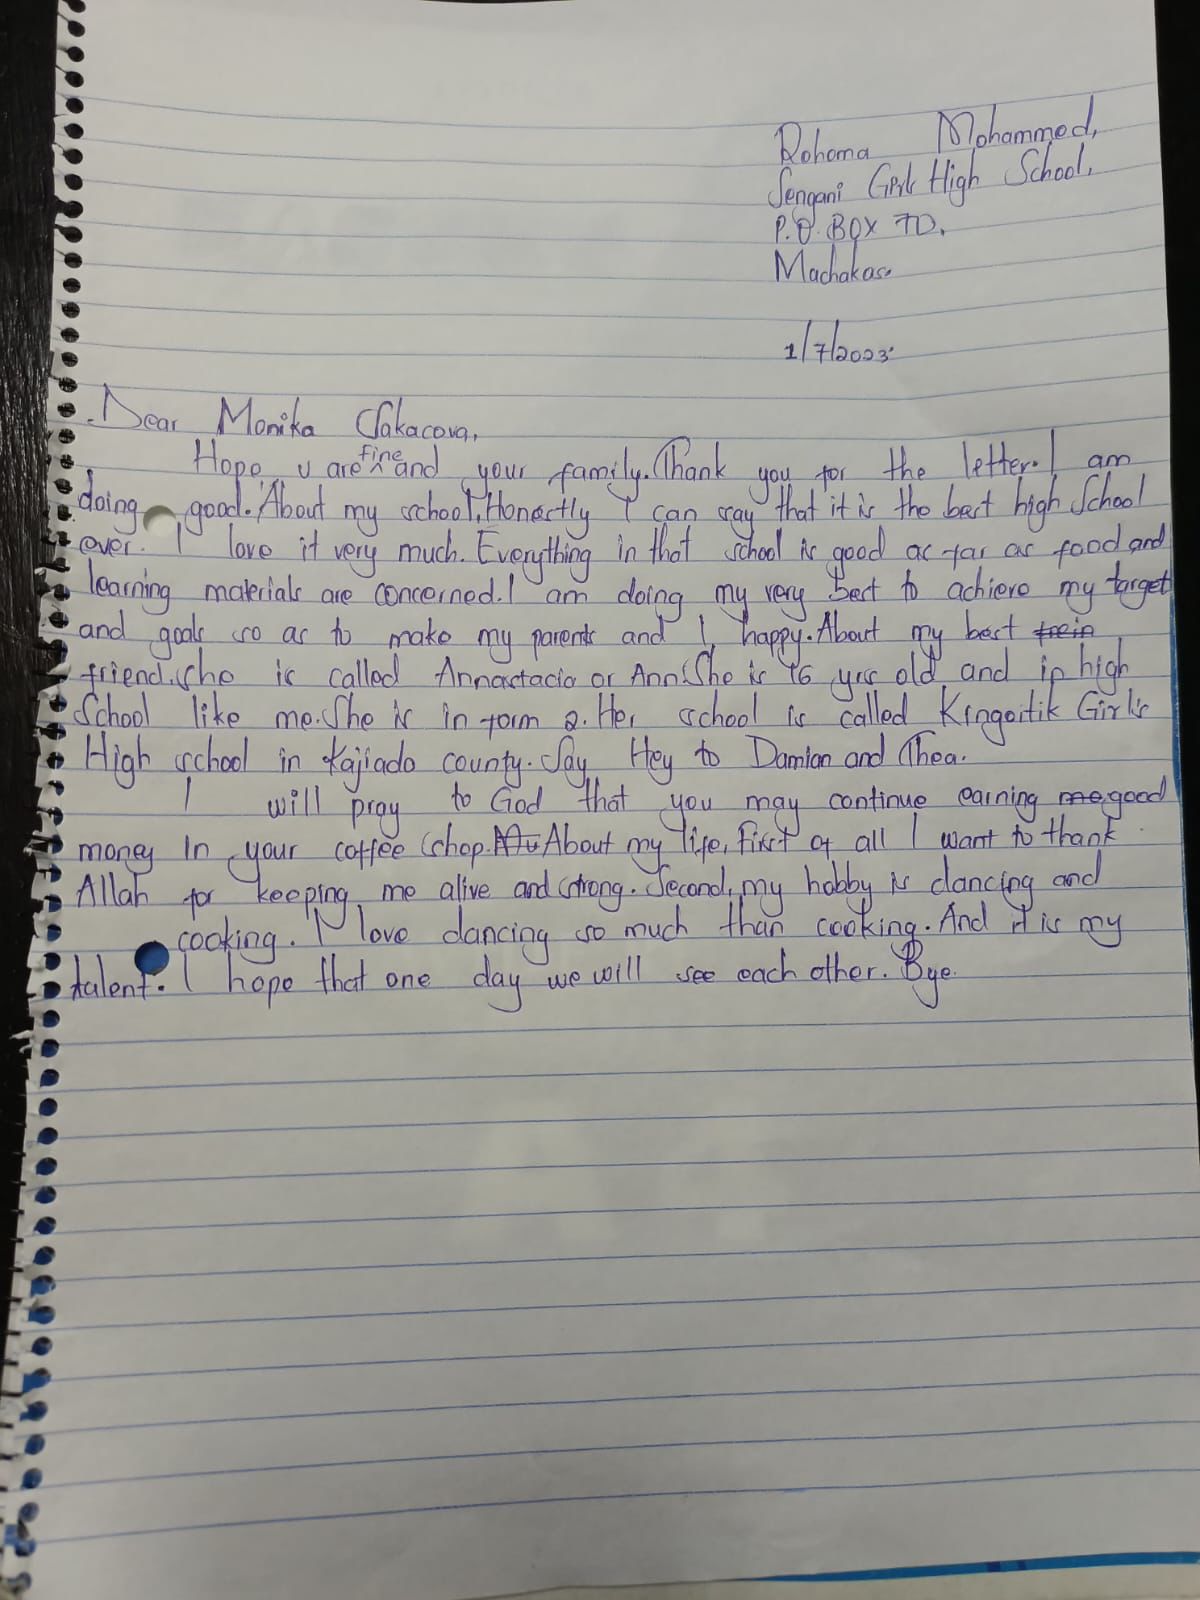 Rohoma Mohammed,
Sengani Girls High School,
P.O. BOX 70,
Machakos.
1/7/2023.
Dear Monika Sakacova,
Hope, u are fine and your family. Thank you for the letter. I am
doing good. About my school, Honestly I can say that it is the best high School
ever. I love it very much. Everything in that school is good as far as food and
learning materials are concerned. I am doing my very best to achieve my target
and goals so as to make my parents and I happy. About my best
friend, she is called Annastacia or Ann. She is 16 yrs old and in high
School like me. She is in form 2. Her school is called Kingoitik Girl's
High school in Kajiado county. Say Hey to Damian and Thea.
I will pray to God that you may continue earning good
money in your coffee shop. About my life, First of all I want to thank
Allah for keeping me alive and strong. Second, my hobby is dancing and
cooking. I love dancing so much than cooking. And it is my
talent. I hope that one day we will see each other. Bye.